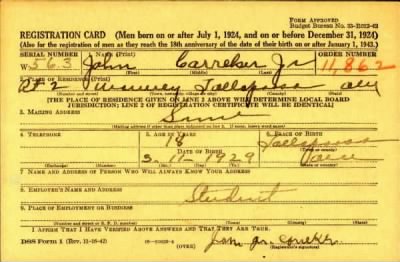 FORM APPROVED
Budget Bureau No. 33-R012-42
REGISTRATION CARD (Men born on or after July 1, 1924, and on or before December 31, 1924)
(Also for the registration of men as they reach the 18th anniversary of the date of their birth on or after January 1, 1943.)
SERIAL NUMBER 1. NAME (Print) ORDER NUMBER
W 563 John Carreker Jr 11,862
(First) (Middle) (Last)
2. PLACE OF RESIDENCE (Print)
Rt 2 Tallapoosa Ala
(Number and street) (Town, township, village, or city) (County) (State)
[THE PLACE OF RESIDENCE GIVEN ON LINE 2 ABOVE WILL DETERMINE LOCAL BOARD
JURISDICTION; LINE 2 OF REGISTRATION CERTIFICATE WILL BE IDENTICAL]
3. MAILING ADDRESS
Same
[Mailing address if other than place indicated on line 2. If same, insert word same]
4. TELEPHONE 5. AGE IN YEARS 6. PLACE OF BIRTH
18 Tallapoosa
DATE OF BIRTH (Town or county)
(Exchange) (Number) (Mo.) (Day) (Yr.) (State or country)
7. NAME AND ADDRESS OF PERSON WHO WILL ALWAYS KNOW YOUR ADDRESS
8. EMPLOYER'S NAME AND ADDRESS
Student
9. PLACE OF EMPLOYMENT OR BUSINESS
(Number and street or R. F. D. number) (Town) (County) (State)
I AFFIRM THAT I HAVE VERIFIED ABOVE ANSWERS AND THAT THEY ARE TRUE.
DSS Form 1 (Rev. 11-16-42) (OVER) John Jr. Carreker
(Registrant's signature)